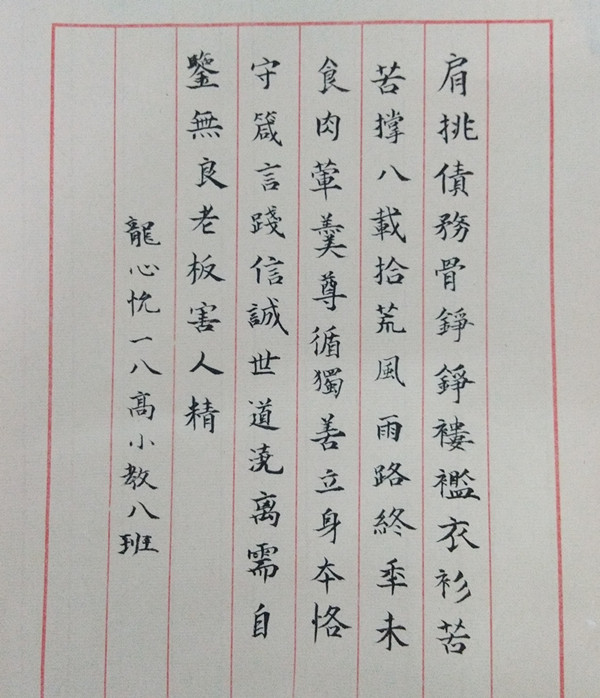 肩挑債務骨錚錚褸襤衣衫苦
苦撑八載拾荒風雨路終年未
食肉葷羹尊循獨善立身本恪
守箴言踐信誠世道澆离需自
鑒無良老板害人精
龍心悅一八高小教八班